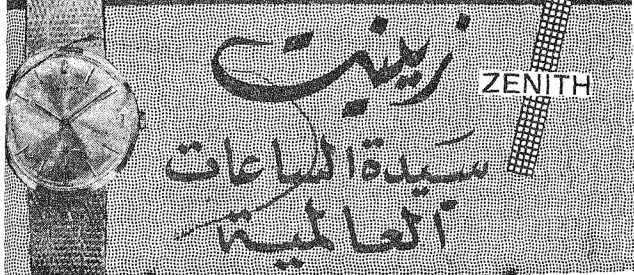 زينيت
ZENITH
سيدة الساعات
العالمية